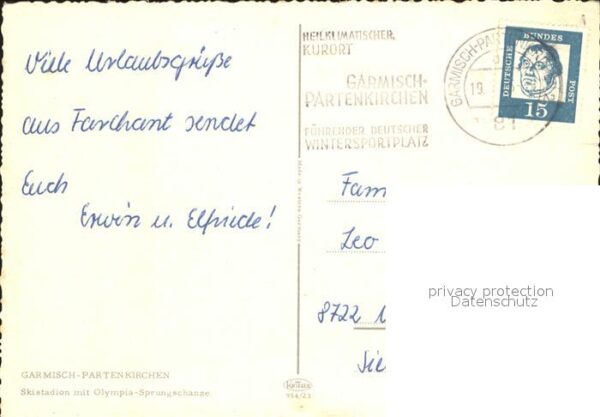 Viele Urlaubsgrüße
aus Farchant sendet
Euch
Erwin u. Elfriede!
GARMISCH-PARTENKIRCHEN
Skistadion mit Olympia-Sprungschanze
HEILKLIMATISCHER
KURORT
GARMISCH-
PARTENKIRCHEN
FÜHRENDER DEUTSCHER
WINTERSPORTPLATZ
GARMISCH-PAR
19.
81
DEUTSCHE
BUNDES
POST
15
Made in Western Germany
KRÜGER
954/23
Fam
Leo
8722
Sie
privacy protection
Datenschutz